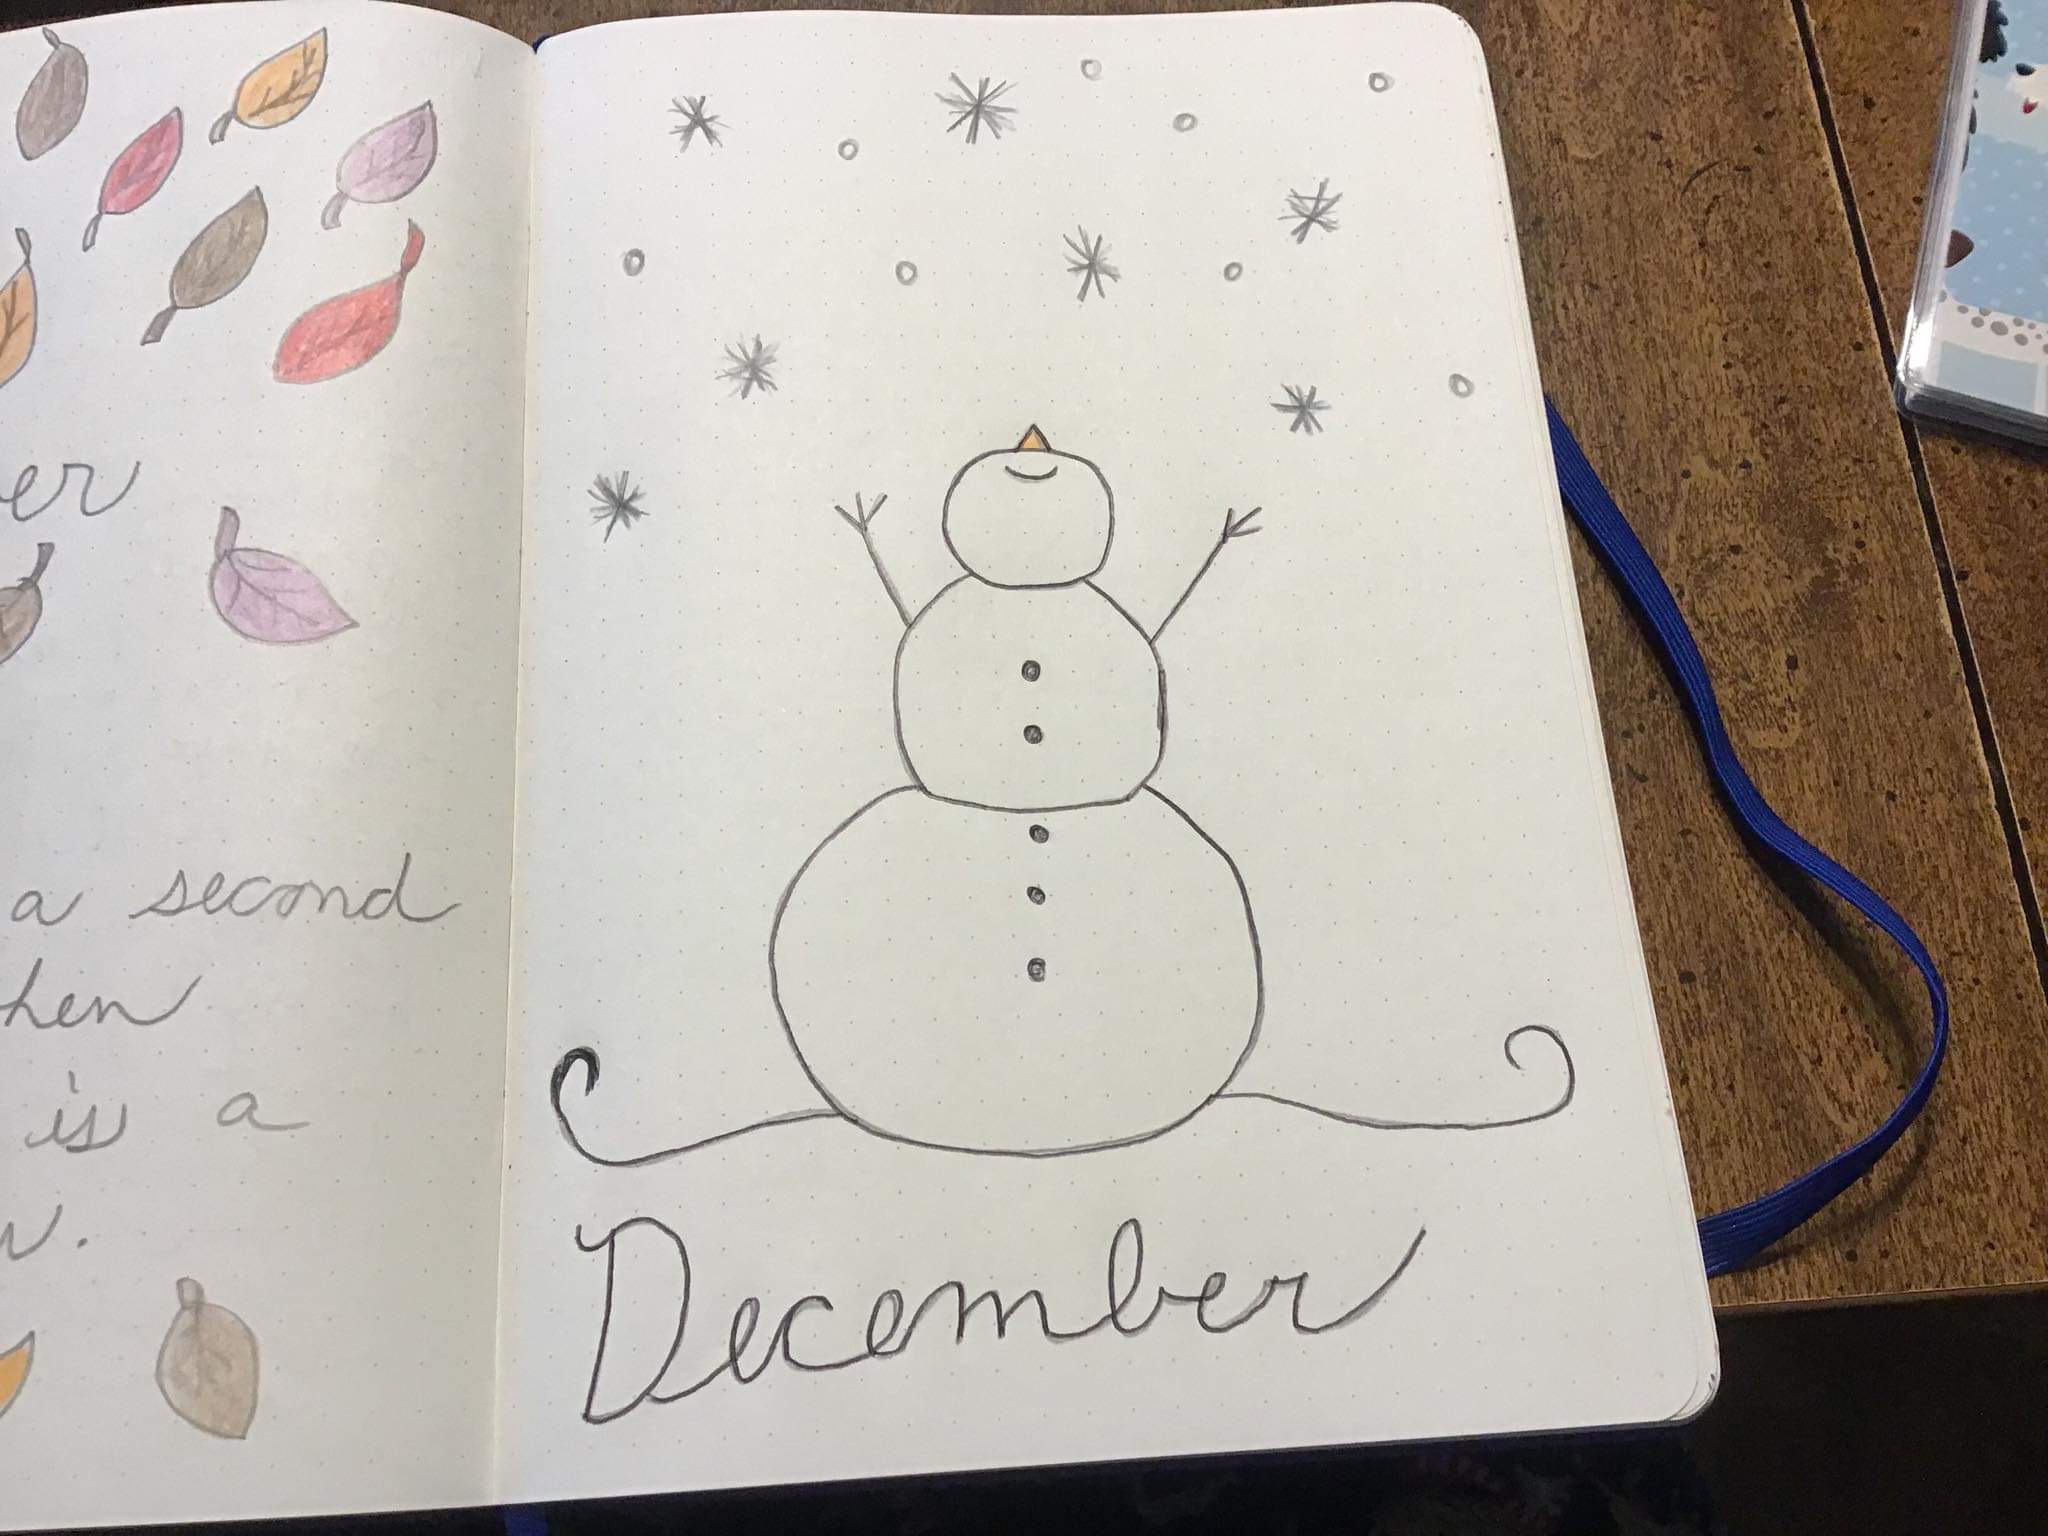 er
a second
hen
is a
December